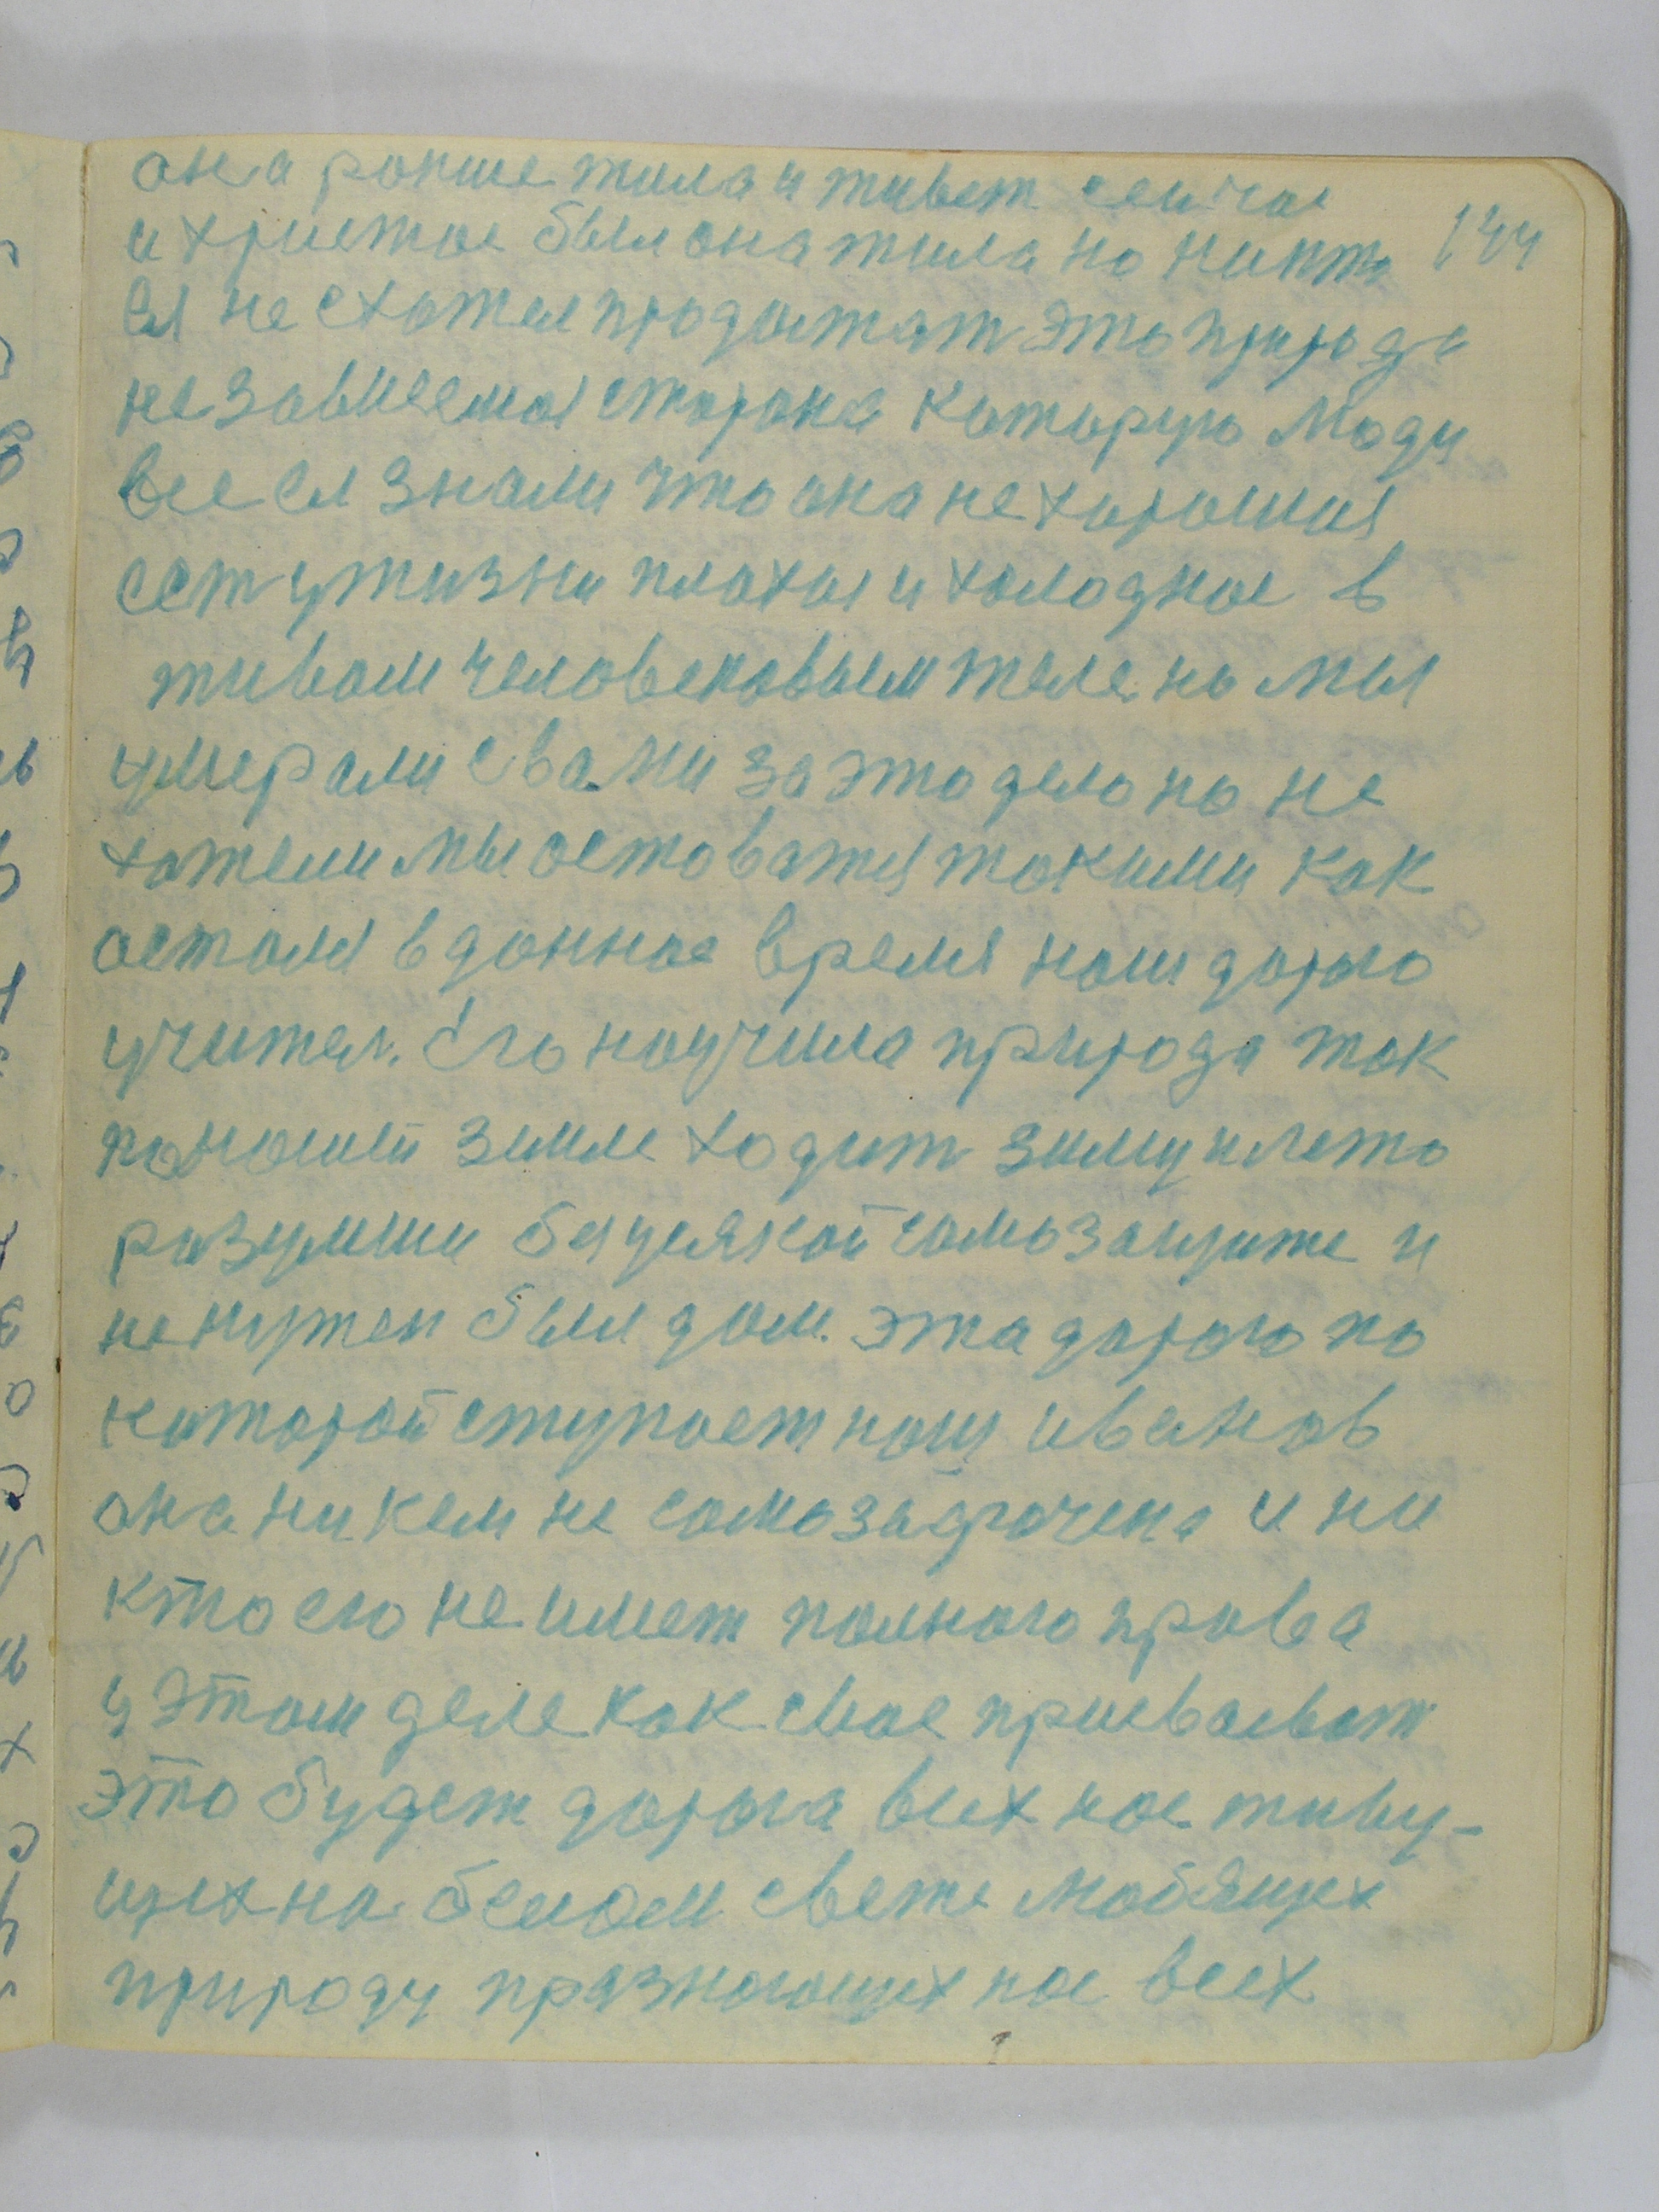 144
она ранше жила и живет сейчас
и христос был она жила но никто
ей не схотел продолжат это природа
не зависемая старана каторую люди
все ей знали что она не харошая
ест у жизни плохая и холодное в
живом человековыем теле но мы
умерали с вами за это дело но не
хотели мы остоватся токими как
остался в донное время наш дорого
учител. Его научила природа так
по ношей земле ходит зиму и лето
разумши без усякой самозащите и
не нужен был дом. эта дорога по
каторой ступает наш иванов
она ни кем не самозадрочена и ни
кто его не имеет полного права
у этом деле как свое присваеват
это будет дорога всех нас живу-
щих на белом свете любящих
природу празнающих нас всех